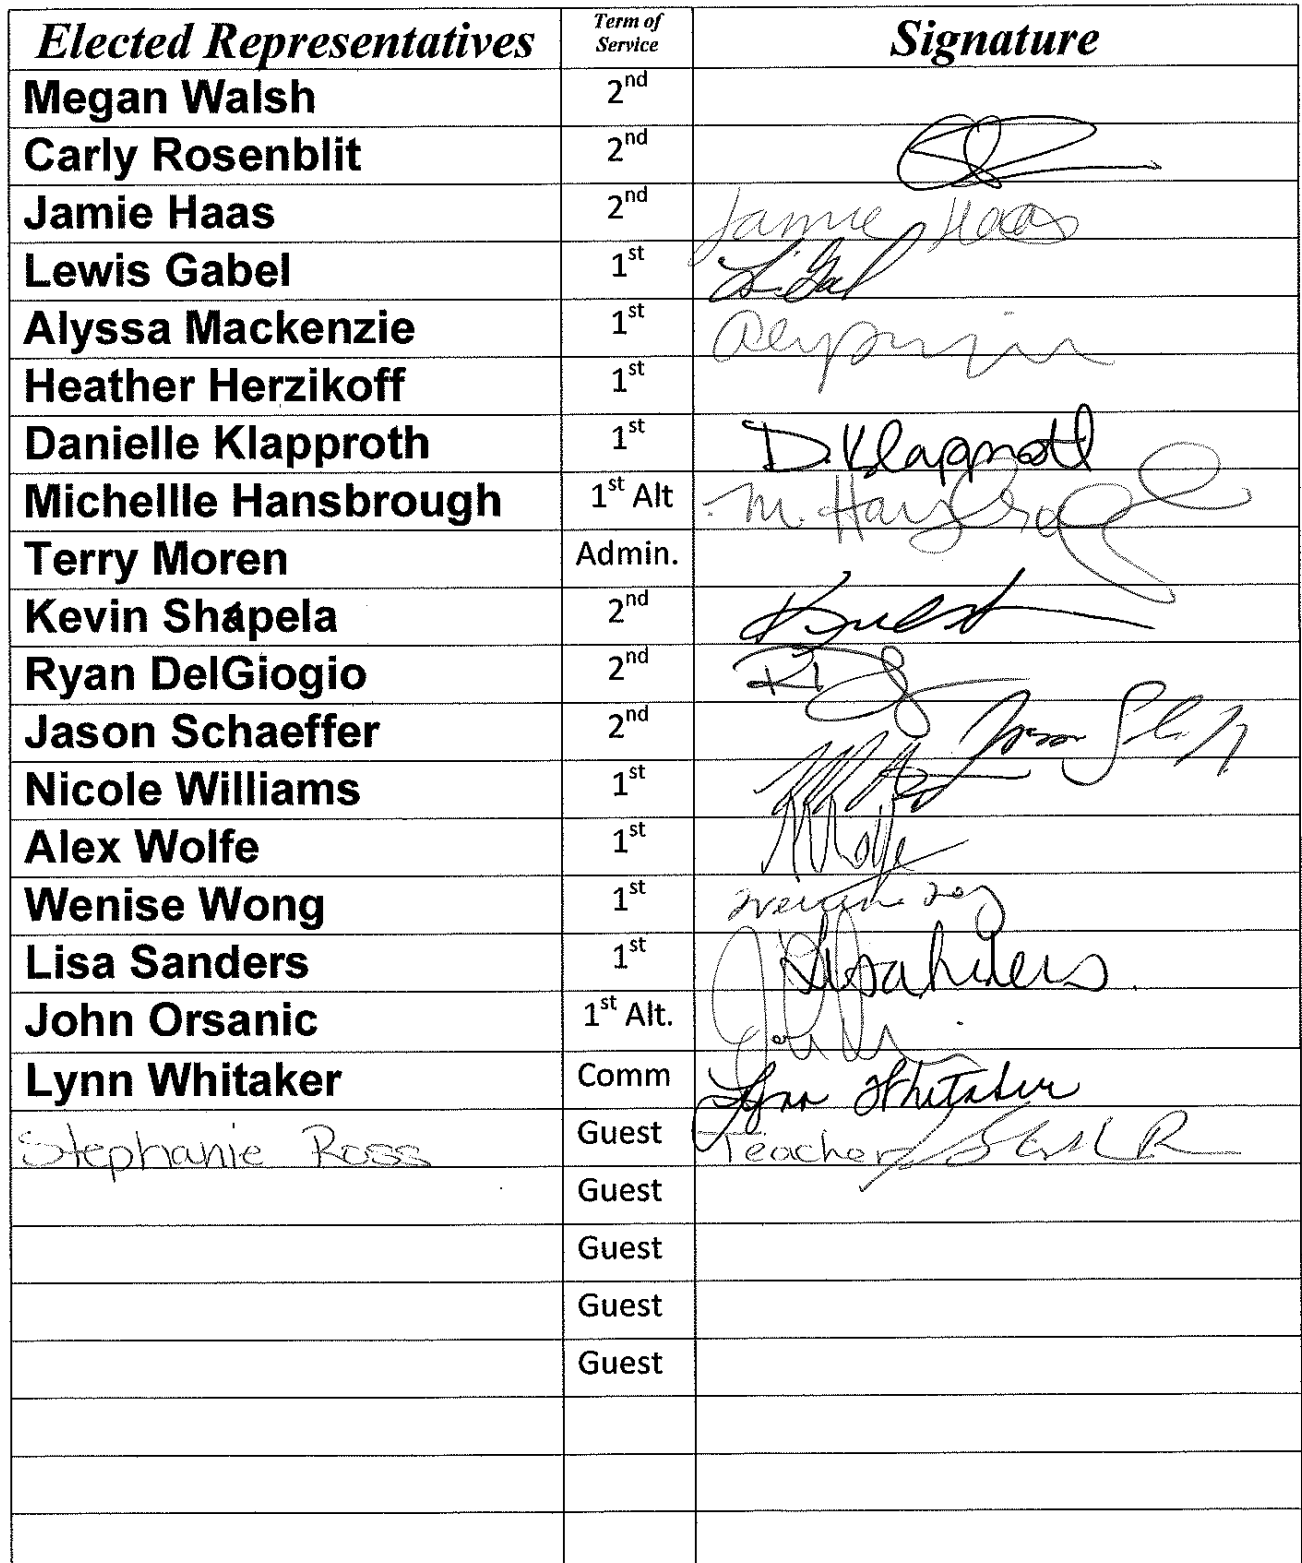 Elected Representatives Term of Service Signature
Megan Walsh 2nd
Carly Rosenblit 2nd
Jamie Haas 2nd Jamie Haas
Lewis Gabel 1st
Alyssa Mackenzie 1st
Heather Herzikoff 1st
Danielle Klapproth 1st D. Klapproth
Michellle Hansbrough 1st Alt M.
Terry Moren Admin.
Kevin Shapela 2nd
Ryan DelGiogio 2nd
Jason Schaeffer 2nd
Nicole Williams 1st
Alex Wolfe 1st
Wenise Wong 1st
Lisa Sanders 1st
John Orsanic 1st Alt.
Lynn Whitaker Comm Lynn Whitaker
Stephanie Ross Guest Teacher/
Guest
Guest
Guest
Guest